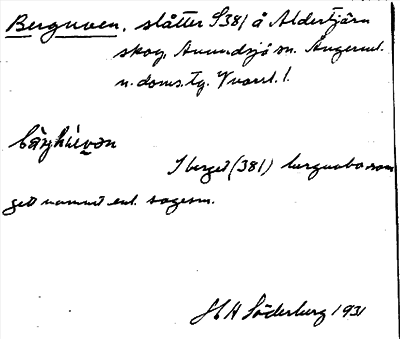 Berguven, slåtter S381 å Aldertjärn
skog, Anundsjö sn. Ångerml.
n. doms.tg. Vnorrl. l.
bärjúvən
I berget (381) berguvbo som
gett namnet enl. sagesm.
H H Söderberg 1931